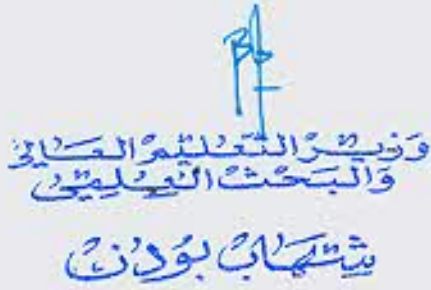 وزير التعليم العالي
والبحث العلمي
شهاب بودن